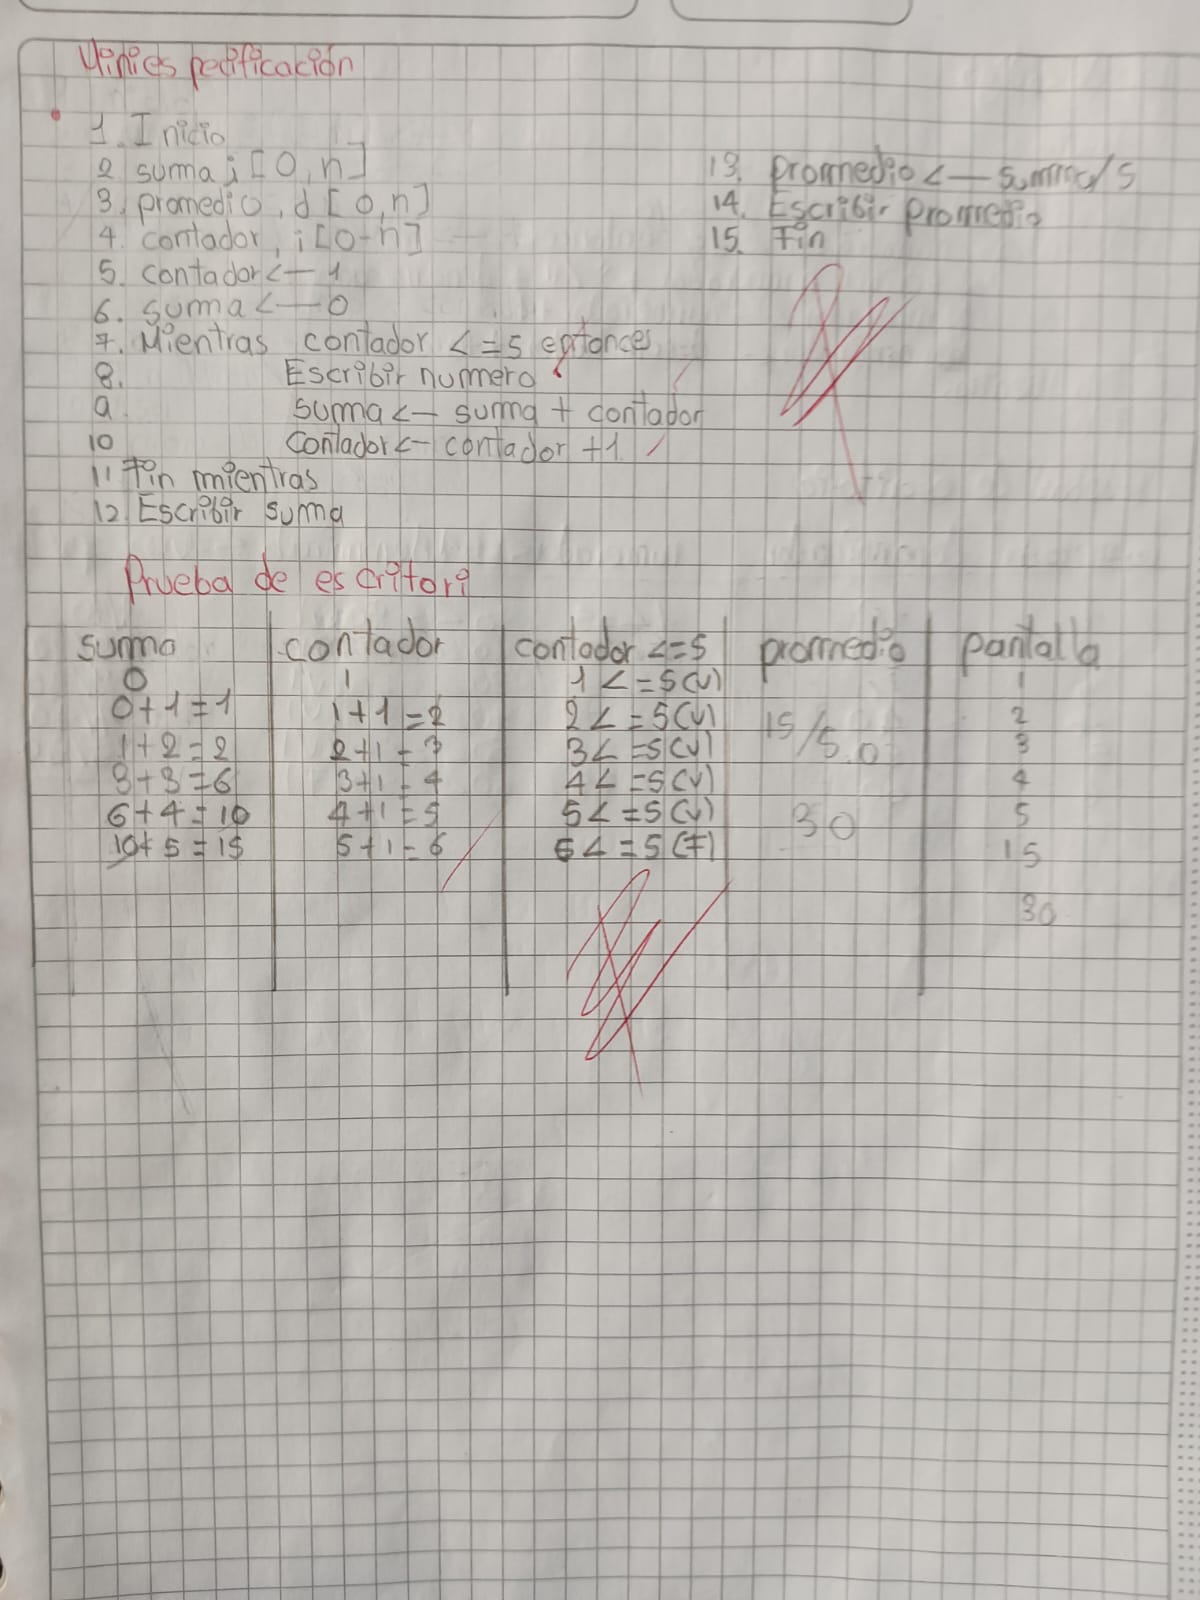 Miniespecificación
1. Inicio
2 suma, i [0, n]
3. promedio, d [0, n]
4. contador, i [0-n]
5. contador <— 1
6. suma <— 0
7. Mientras contador <=5 entonces
8. Escribir numero
9 suma <— suma + contador
10 contador <— contador +1
11 Fin mientras
12. Escribir suma
13. promedio <— suma/5
14. Escribir promedio
15. Fin
Prueba de escritori
suma contador contador <=5 promedio pantalla
0 1 1 <=5(v) 1
0+1=1 1+1=2 2<=5(v) 15/5.0 2
1+2=2 2+1=3 3<=5(v) 3
3+3=6 3+1=4 4<=5(v) 4
6+4=10 4+1=5 5<=5(v) 30 5
10+5=15 5+1=6 6<=5(F) 15
30